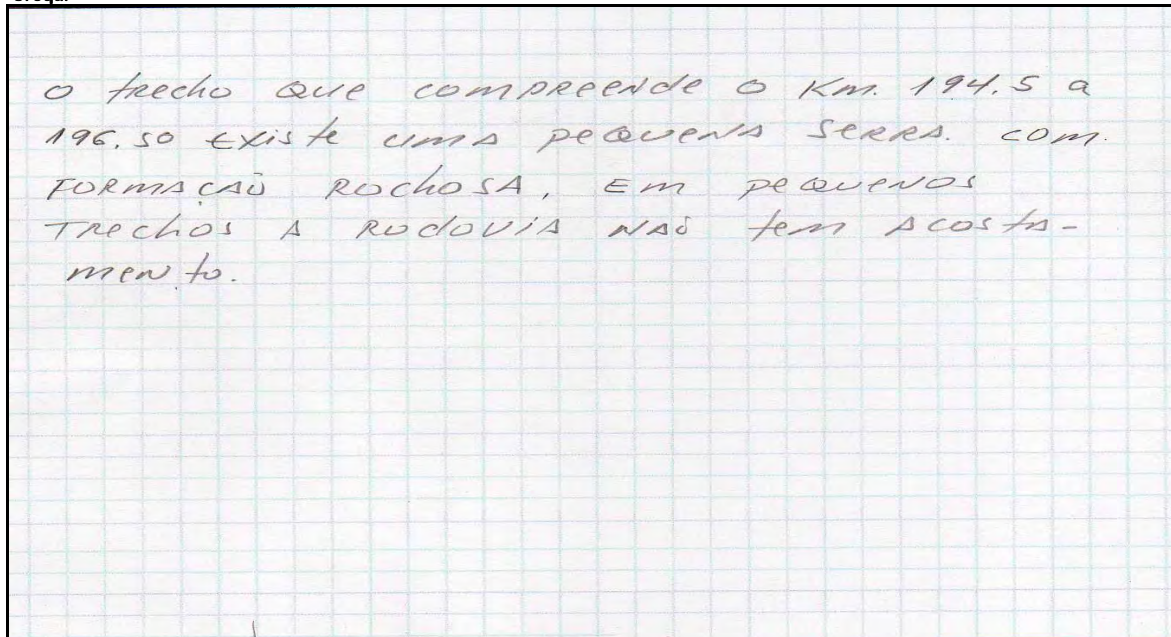 o trecho que compreende o Km. 194.5 a
196.50 Existe uma pequena serra. com.
FORMAÇÃO ROCHOSA, Em pequenos
Trechos A Rodovia NÃO tem Acosta-
mento.